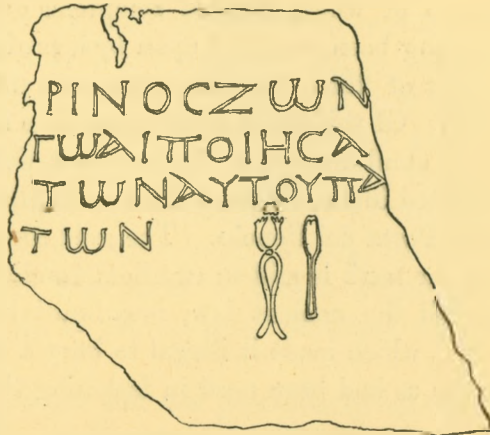 ΡΙΝΟϹΖωΝ
ΓωΑΙΠΟΙΗϹΑ
ΤωΝΑΥΤΟΥΠΑ
ΤωΝ